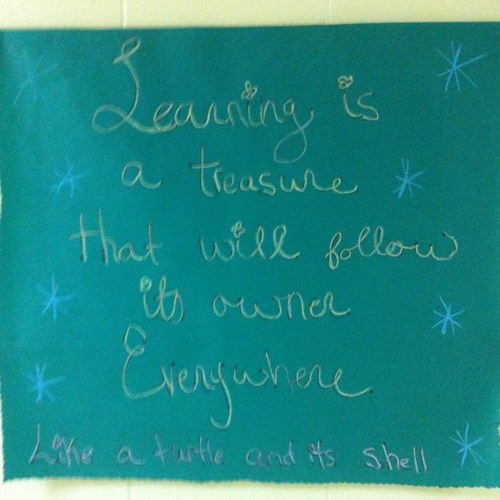 Learning is
a treasure
that will follow
its owner
Everywhere
Like a turtle and its shell